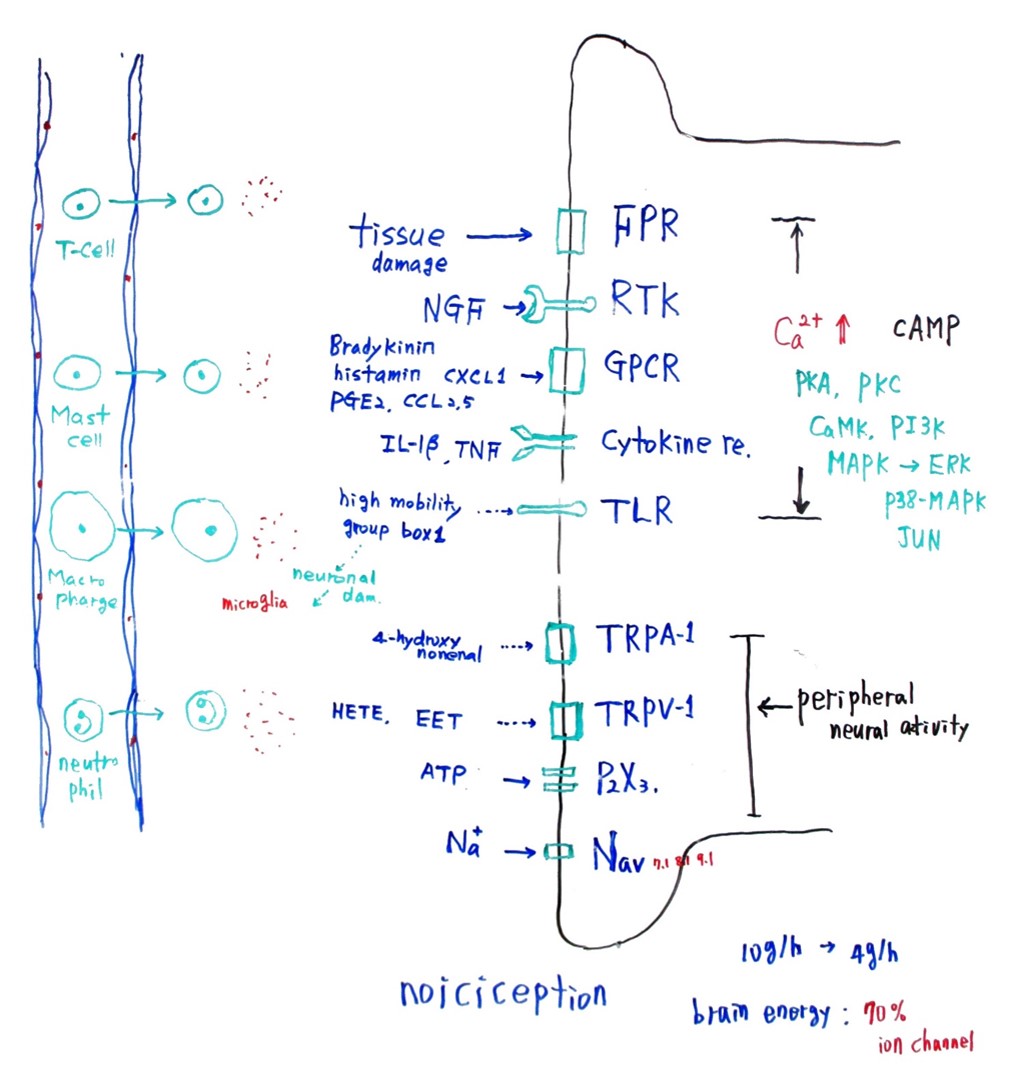 T-Cell
Mast
cell
Macro
pharge
neutro
phil
tissue
damage
NGF
Bradykinin
histamin CXCL1
PGE2, CCL2,5
IL-1β, TNF
high mobility
group box1
neuronal
dam.
microglia
4-hydroxy
nonenal
HETE, EET
ATP
Na+
FPR
RTK
GPCR
Cytokine re.
TLR
TRPA-1
TRPV-1
P2X3.
Nav 7.1 8.1 9.1
Ca2+ ⇑ cAMP
PKA, PKC
CaMK, PI3K
MAPK → ERK
P38-MAPK
JUN
peripheral
neural ativity
noiciception
10g/h → 4g/h
brain energy : 70%
ion channel